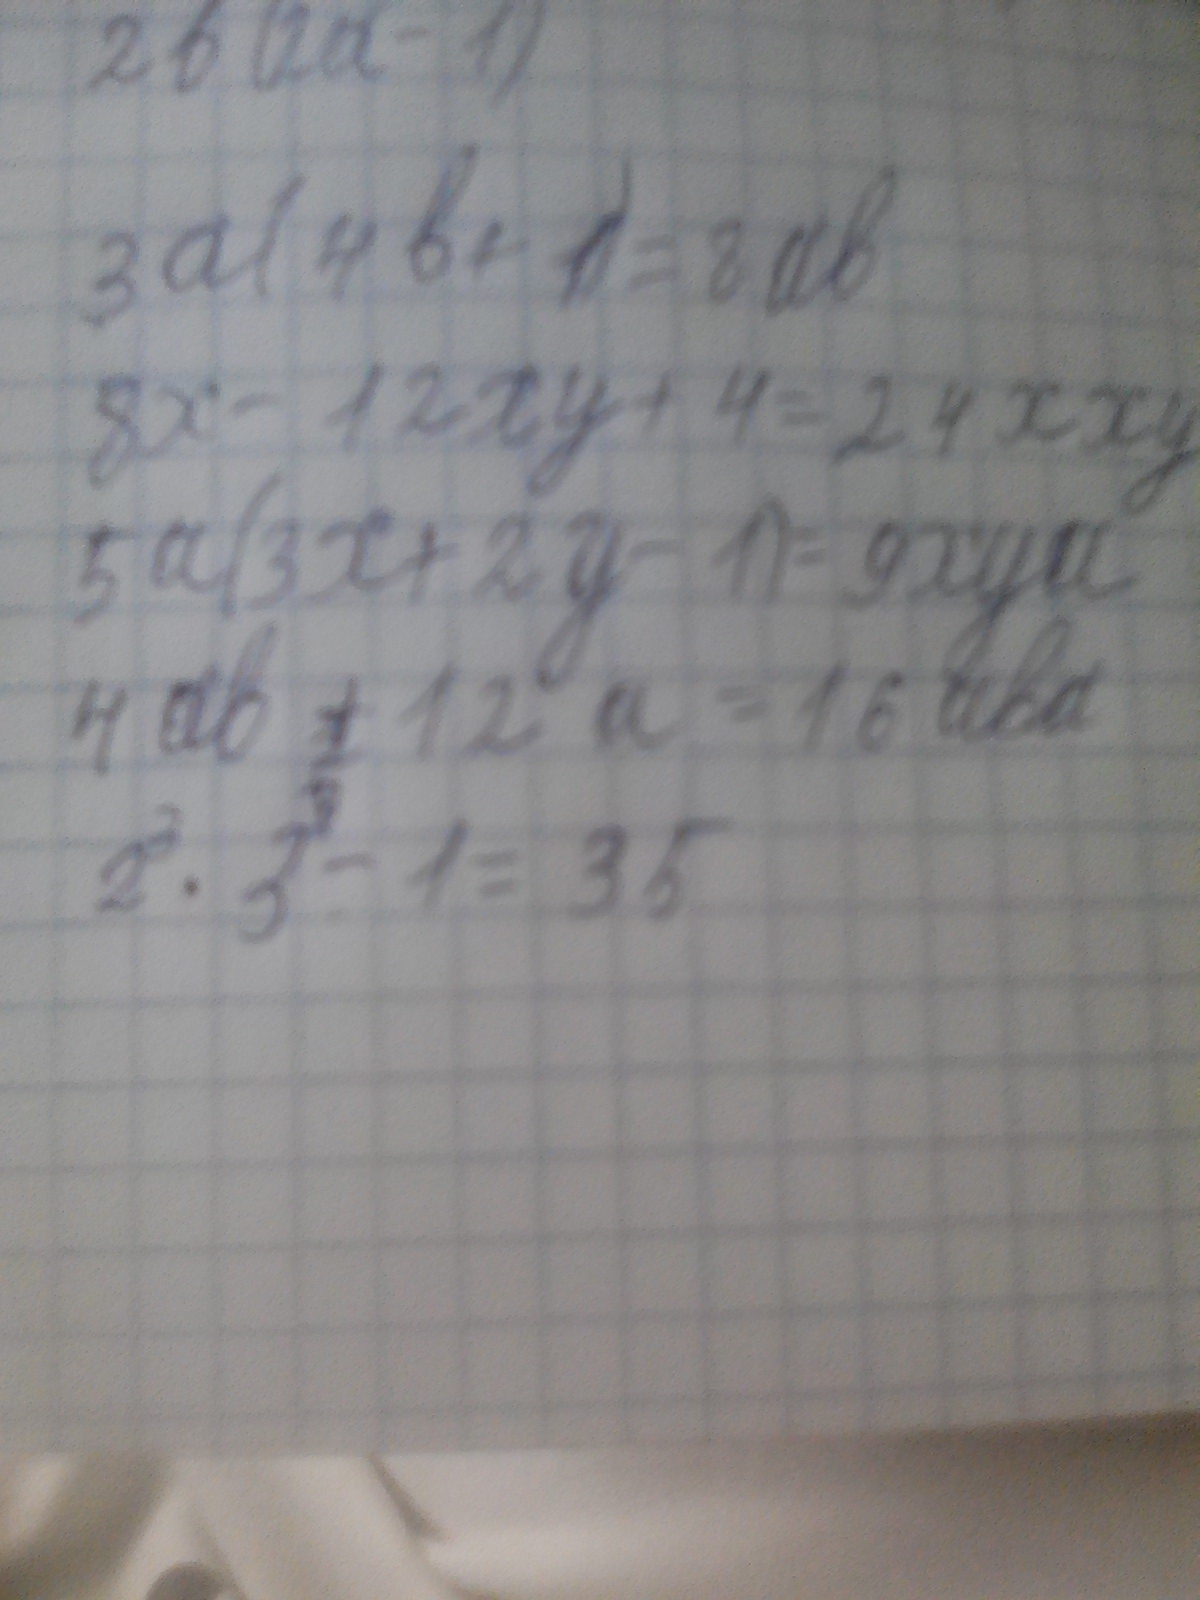 2b(2a - 1)
3a(4b + 1) = 8ab
8x - 12xy + 4 = 24xxy
5a(3x + 2y - 1) = 9xya
4ab + 12a = 16aba
2² · 3² - 1 = 35